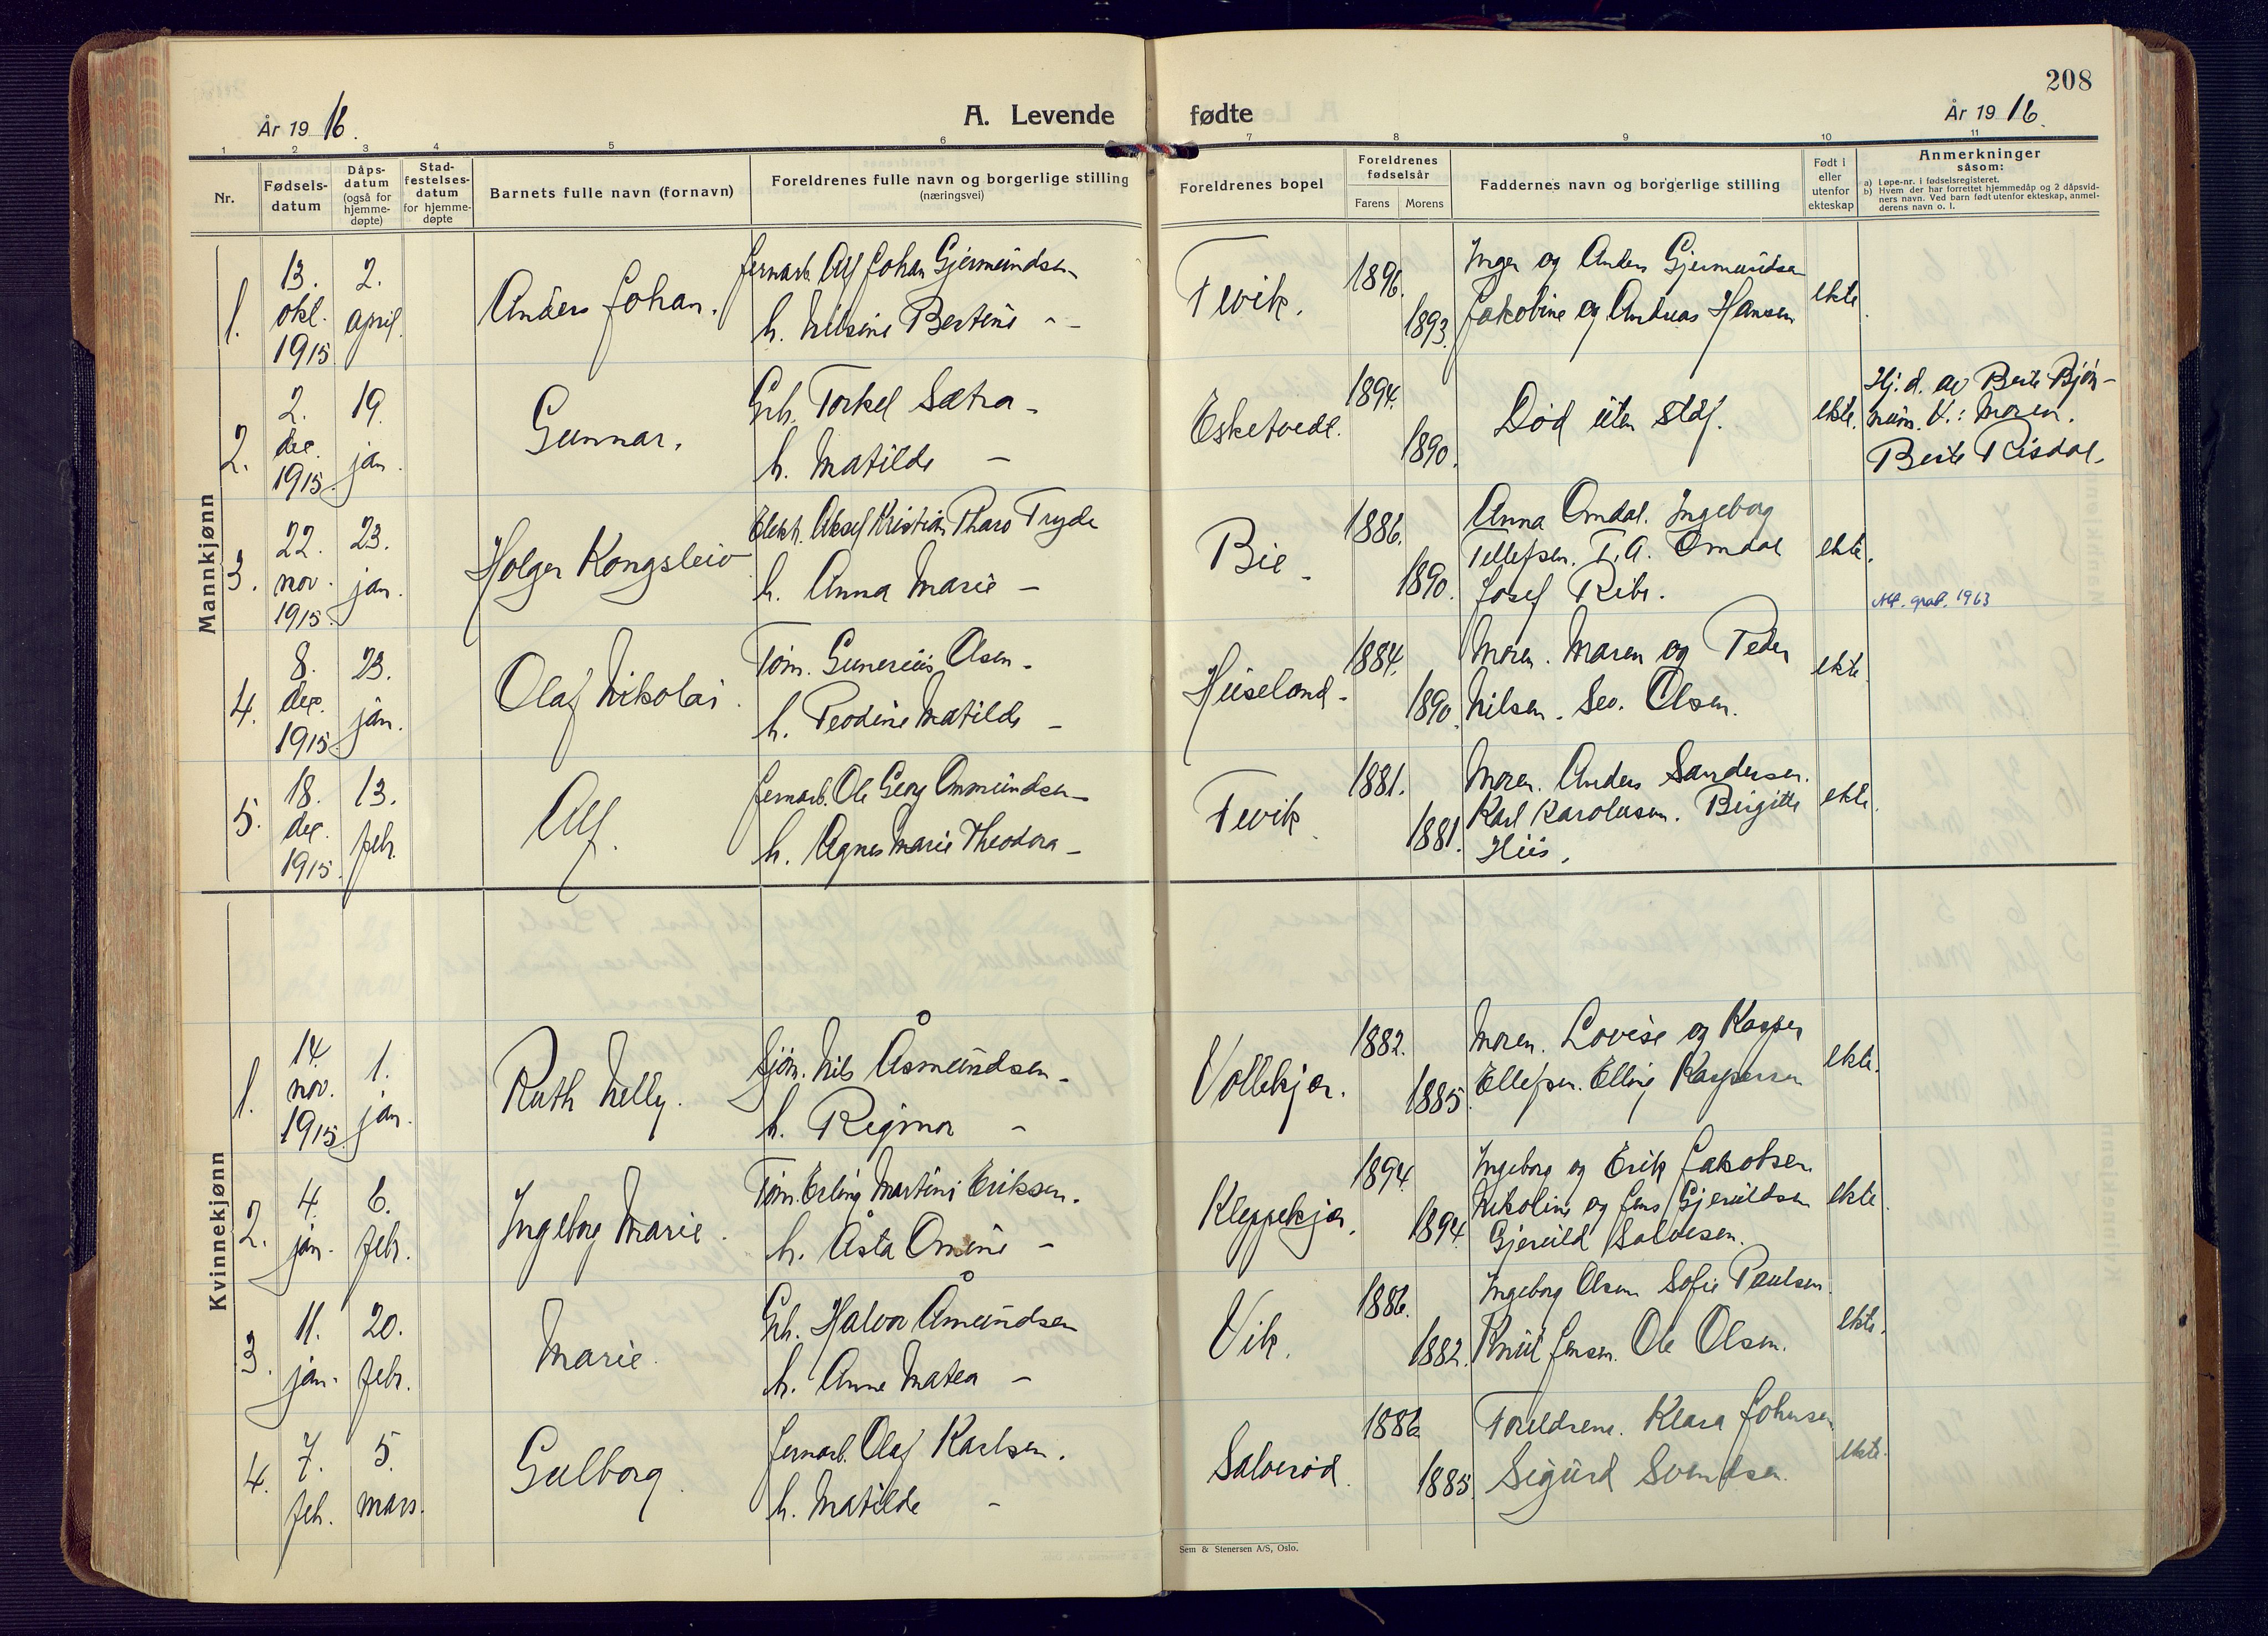 208
År 1916.
A. Levende fødte
År 1916.
1 2 3 4 5 6 7 8 9 10 11
Nr.
Fødsels-
datum
Dåps-
datum
(også for
hjemme-
døpte)
Stad-
festelses-
datum
for hjemme-
døpte
Barnets fulle navn (fornavn)
Foreldrenes fulle navn og borgerlige stilling
(næringsvei)
Foreldrenes bopel
Foreldrenes
fødselsår
Farens Morens
Faddernes navn og borgerlige stilling
Født i
eller
utenfor
ekteskap
Anmerkninger
såsom:
a) Løpe-nr. i fødselsregisteret.
b) Hvem der har forrettet hjemmedåp og 2 dåpsvid-
ners navn. Ved barn født utenfor ekteskap, anmel-
derens navn o. l.
Mannkjønn
1.
13.
okt.
1915
2.
april.
Anders Johan.
Jernarb. Alf Johan Gjermundsen
h. Nilsine Bertine -
Fevik.
1896.
1893.
Inger og Anders Gjermundsen
Jakobine og Andreas Hansen
ekte.
2.
2.
des.
1915.
19.
jan.
Gunnar.
Grb. Torkel Sætra -
h. Matilde -
Esketvedt.
1894.
1890.
Død uten stdf.
ekte.
Hj. d. av Berte Bjön-
num. V.: Moren.
Berte Risdal.
3.
22.
nov.
1915.
23.
jan.
Holger Kongsleiv
Elekt. Aksel Kristian Tharo Tryde
h. Anna Marie -
Bie -
1886.
1890.
Anna Omdal. Ingeborg
Tellefsen. T. A. Omdal
Josef Ribe.
ekte.
1963
4.
8.
des.
1915
23.
jan.
Olaf Nikolai.
Töm. Gunerius Olsen -
h. Teodine Matilde -
Huseland -
1884.
1890.
Moren. Maren og Peder
Nilsen. Sev. Olsen.
ekte.
5.
18.
des.
1915.
13.
febr.
Alf.
Jernarb. Ole Georg Ommundsen -
h. Agnes Marie Theodora -
Fevik.
1881.
1881.
Moren. Anders Sandersen.
Karl Karolusen. Birgitte
Hus.
ekte.
Kvinnekjønn
1.
14.
nov.
1915.
1.
jan.
Ruth Nelly.
Sjöm. Nils Åsmundsen -
h. Rigmor -
Vollekjær.
1882.
1885.
Moren. Lovise og Kasper
Ellefsen. Elling Kaspersen
ekte.
2.
4.
jan.
6.
febr.
Ingeborg Marie.
Töm. Erling Martini Eriksen.
h. Åsta Omine -
Kleppekjær.
1894.
1894.
Ingeborg og Erik Jakobsen.
Nikoline og Jens Gjeruldsen
Gjeruld Salvesen.
ekte.
3.
11.
jan.
20.
febr.
Marie.
Grb. Halvor Åmundsen
h. Anne Matea -
Vik.
1886.
1882.
Ingeborg Olsen Sofie Paulsen.
Knut Jensen. Ole Olsen.
ekte.
4.
7.
feb.
5.
mars.
Gulborg.
Jernarb. Olaf Karlsen.
h. Matilde -
Salveröd.
1886
1885.
Foreldrene. Klara Johnsen
Sigurd Svendsen.
ekte.
Sem & Stenersen A/S, Oslo.